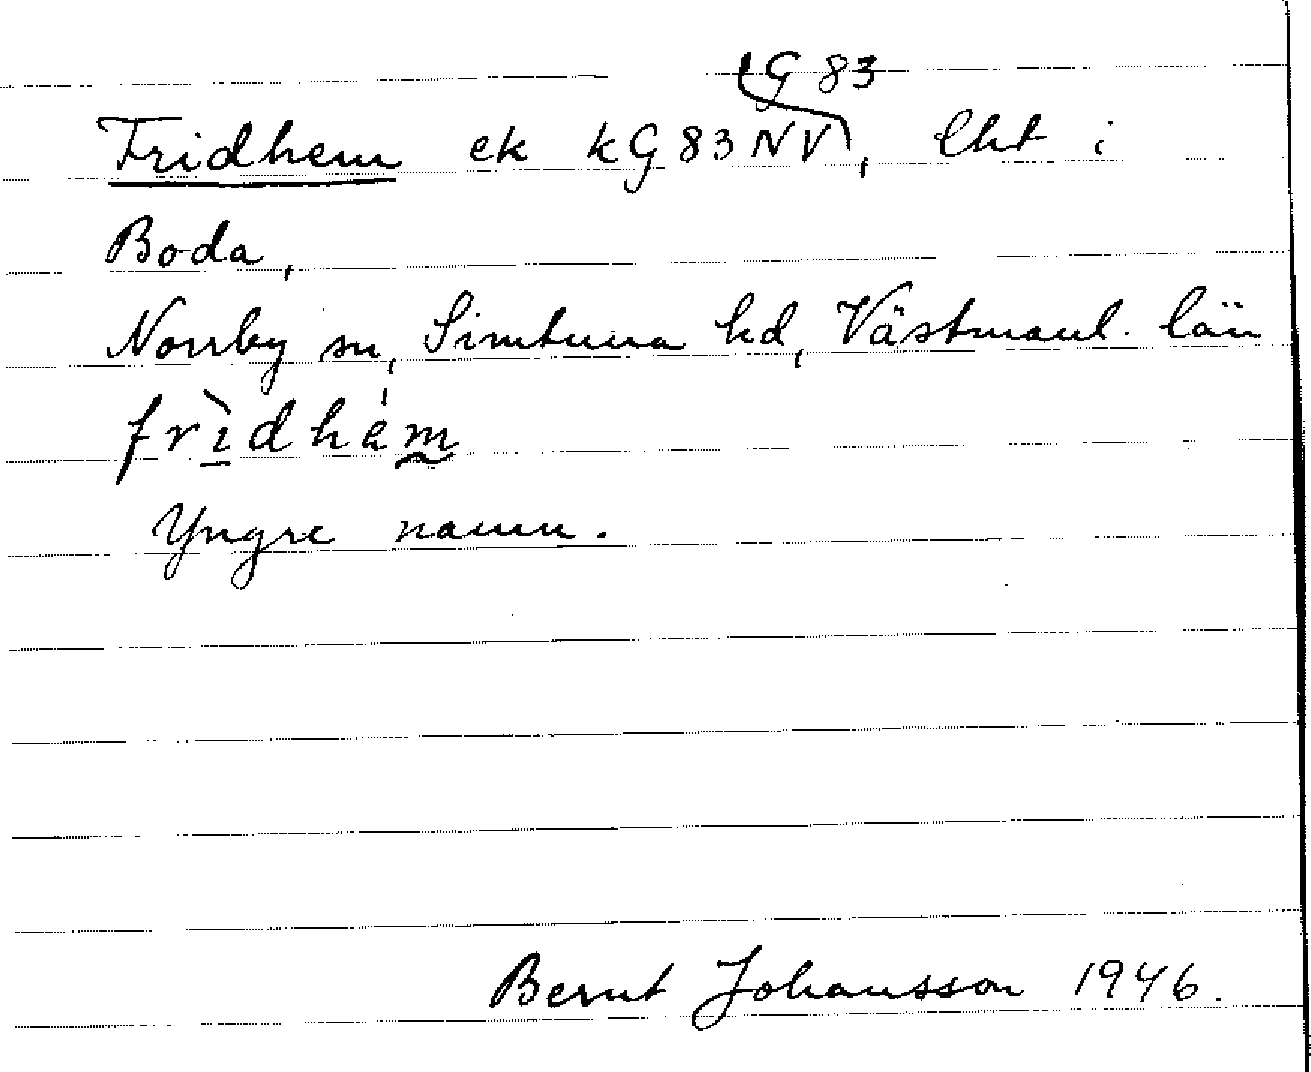 G 83
Fridhem ek kG83NV, lht i
Boda,
Norrby sn, Simtuna hd, Västmanl. län
frìdhem
Yngre namn.
Bernt Johansson 1946.